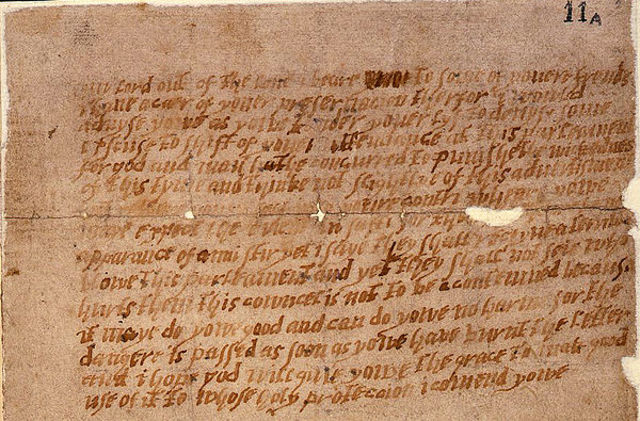 11A
my lord out of the love i beare to some of youere frends
i have a caer of youer preseruacion therfor i would
aduyse yowe as yowe tender youer lyf to deuys some
excuse to shift of youer attendance at this parleament
for god and man hathe concurred to punishe the wickednes
of this tyme and thinke not slightlye of this aduertisment
youre contri wheare yowe
maye expect the euent in safti for
apparance of anni stir yet i saye they shall receyue a terrible
blowe this parleament and yet they shall not seie who
hurts them this cowncel is not to be acontemned because
it maye do yowe good and can do yowe no harme for the
dangere is passed as soon as yowe have burnt the letter
and i hope god will giue yowe the grace to mak good
use of it to whose holy proteccion i comend yowe